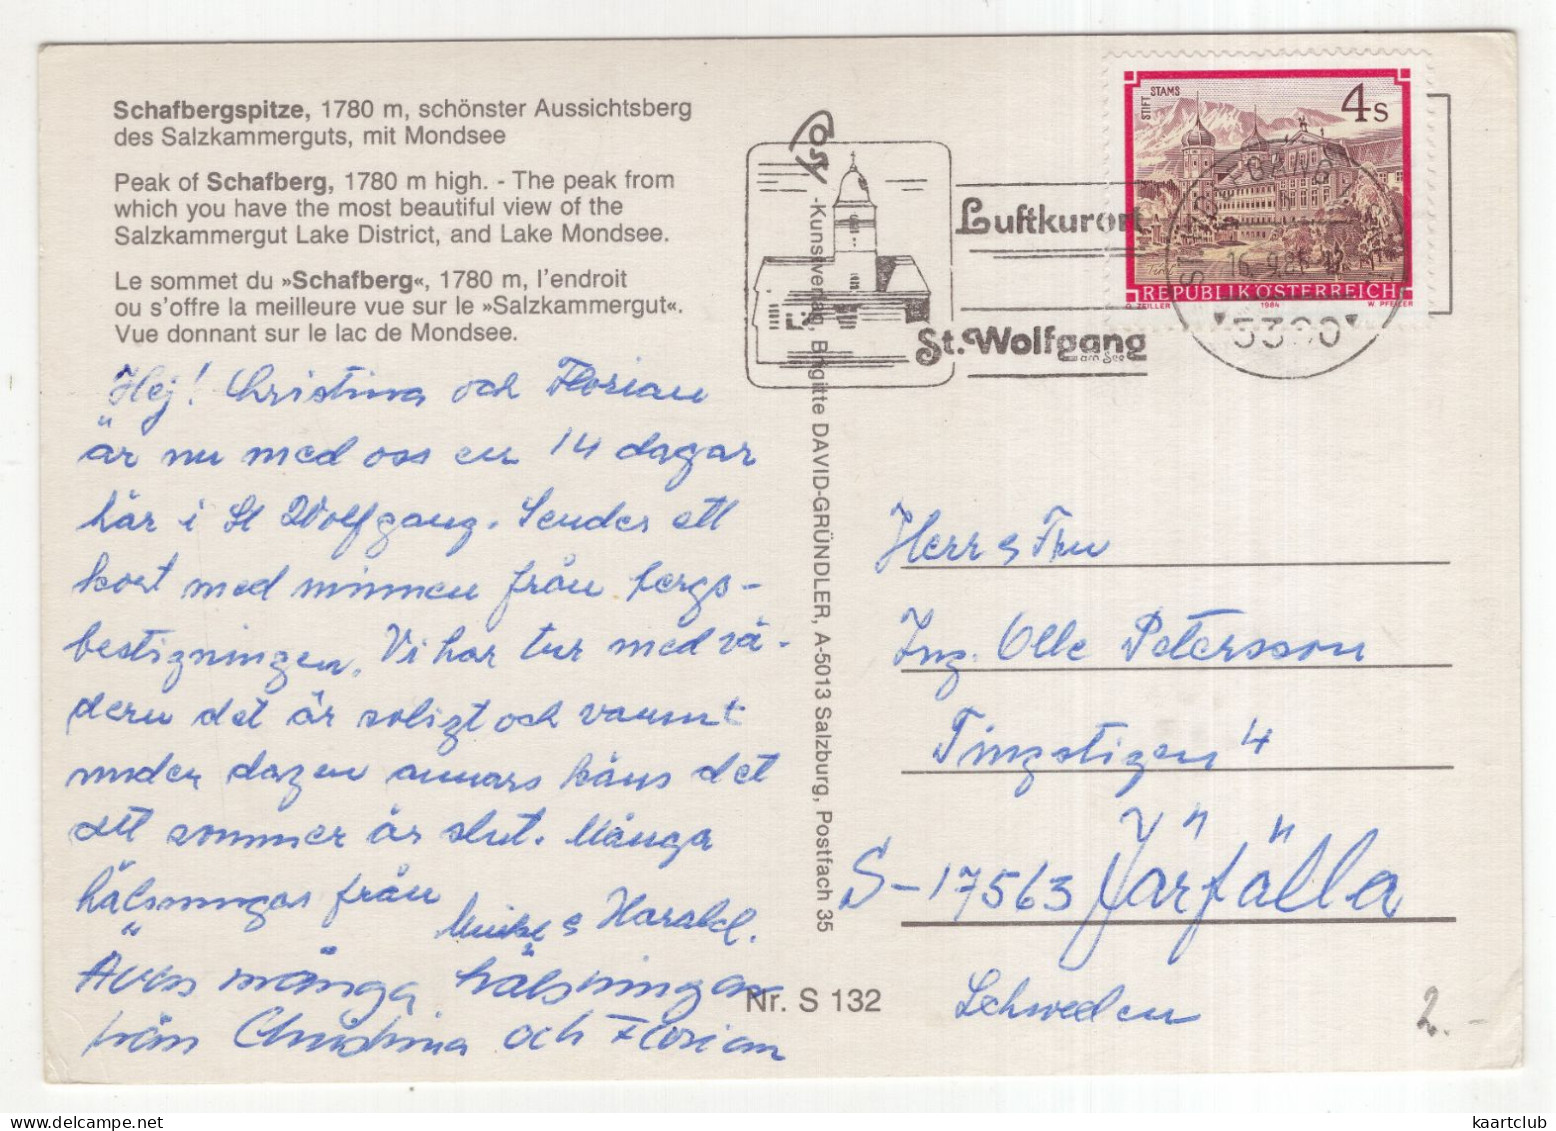 Schafbergspitze, 1780 m, schönster Aussichtsberg
des Salzkammerguts, mit Mondsee
Peak of Schafberg, 1780 m high. - The peak from
which you have the most beautiful view of the
Salzkammergut Lake District, and Lake Mondsee.
Le sommet du »Schafberg«, 1780 m, l'endroit
ou s'offre la meilleure vue sur le »Salzkammergut«.
Vue donnant sur le lac de Mondsee.
Hej! Christina och Florian
är nu med oss en 14 dagar
här i St Wolfgang. Sender ett
kort med minnen från bergs-
bestigningen. Vi har tur med vä-
dern det är soligt och varmt
under dagen annars käns det
att sommer är slut. Många
hälsningar från
& Harald.
Även många hälsningar
från Christina och Florian
Cosy
-Kunstverlag, Brigitte DAVID-GRÜNDLER, A-5013 Salzburg, Postfach 35
Nr. S 132
Luftkurort
St. Wolfgang
am See
STIFT STAMS
4 S
Tirol
REPUBLIK ÖSTERREICH
O. ZEILLER 1984 W. PFEILER
16.-9.86-12
5360
Herr & Fru
Ing. Olle Petersson
Tingstigen 4
S-17563 Järfälla
Schweden
2.-
kaartclub